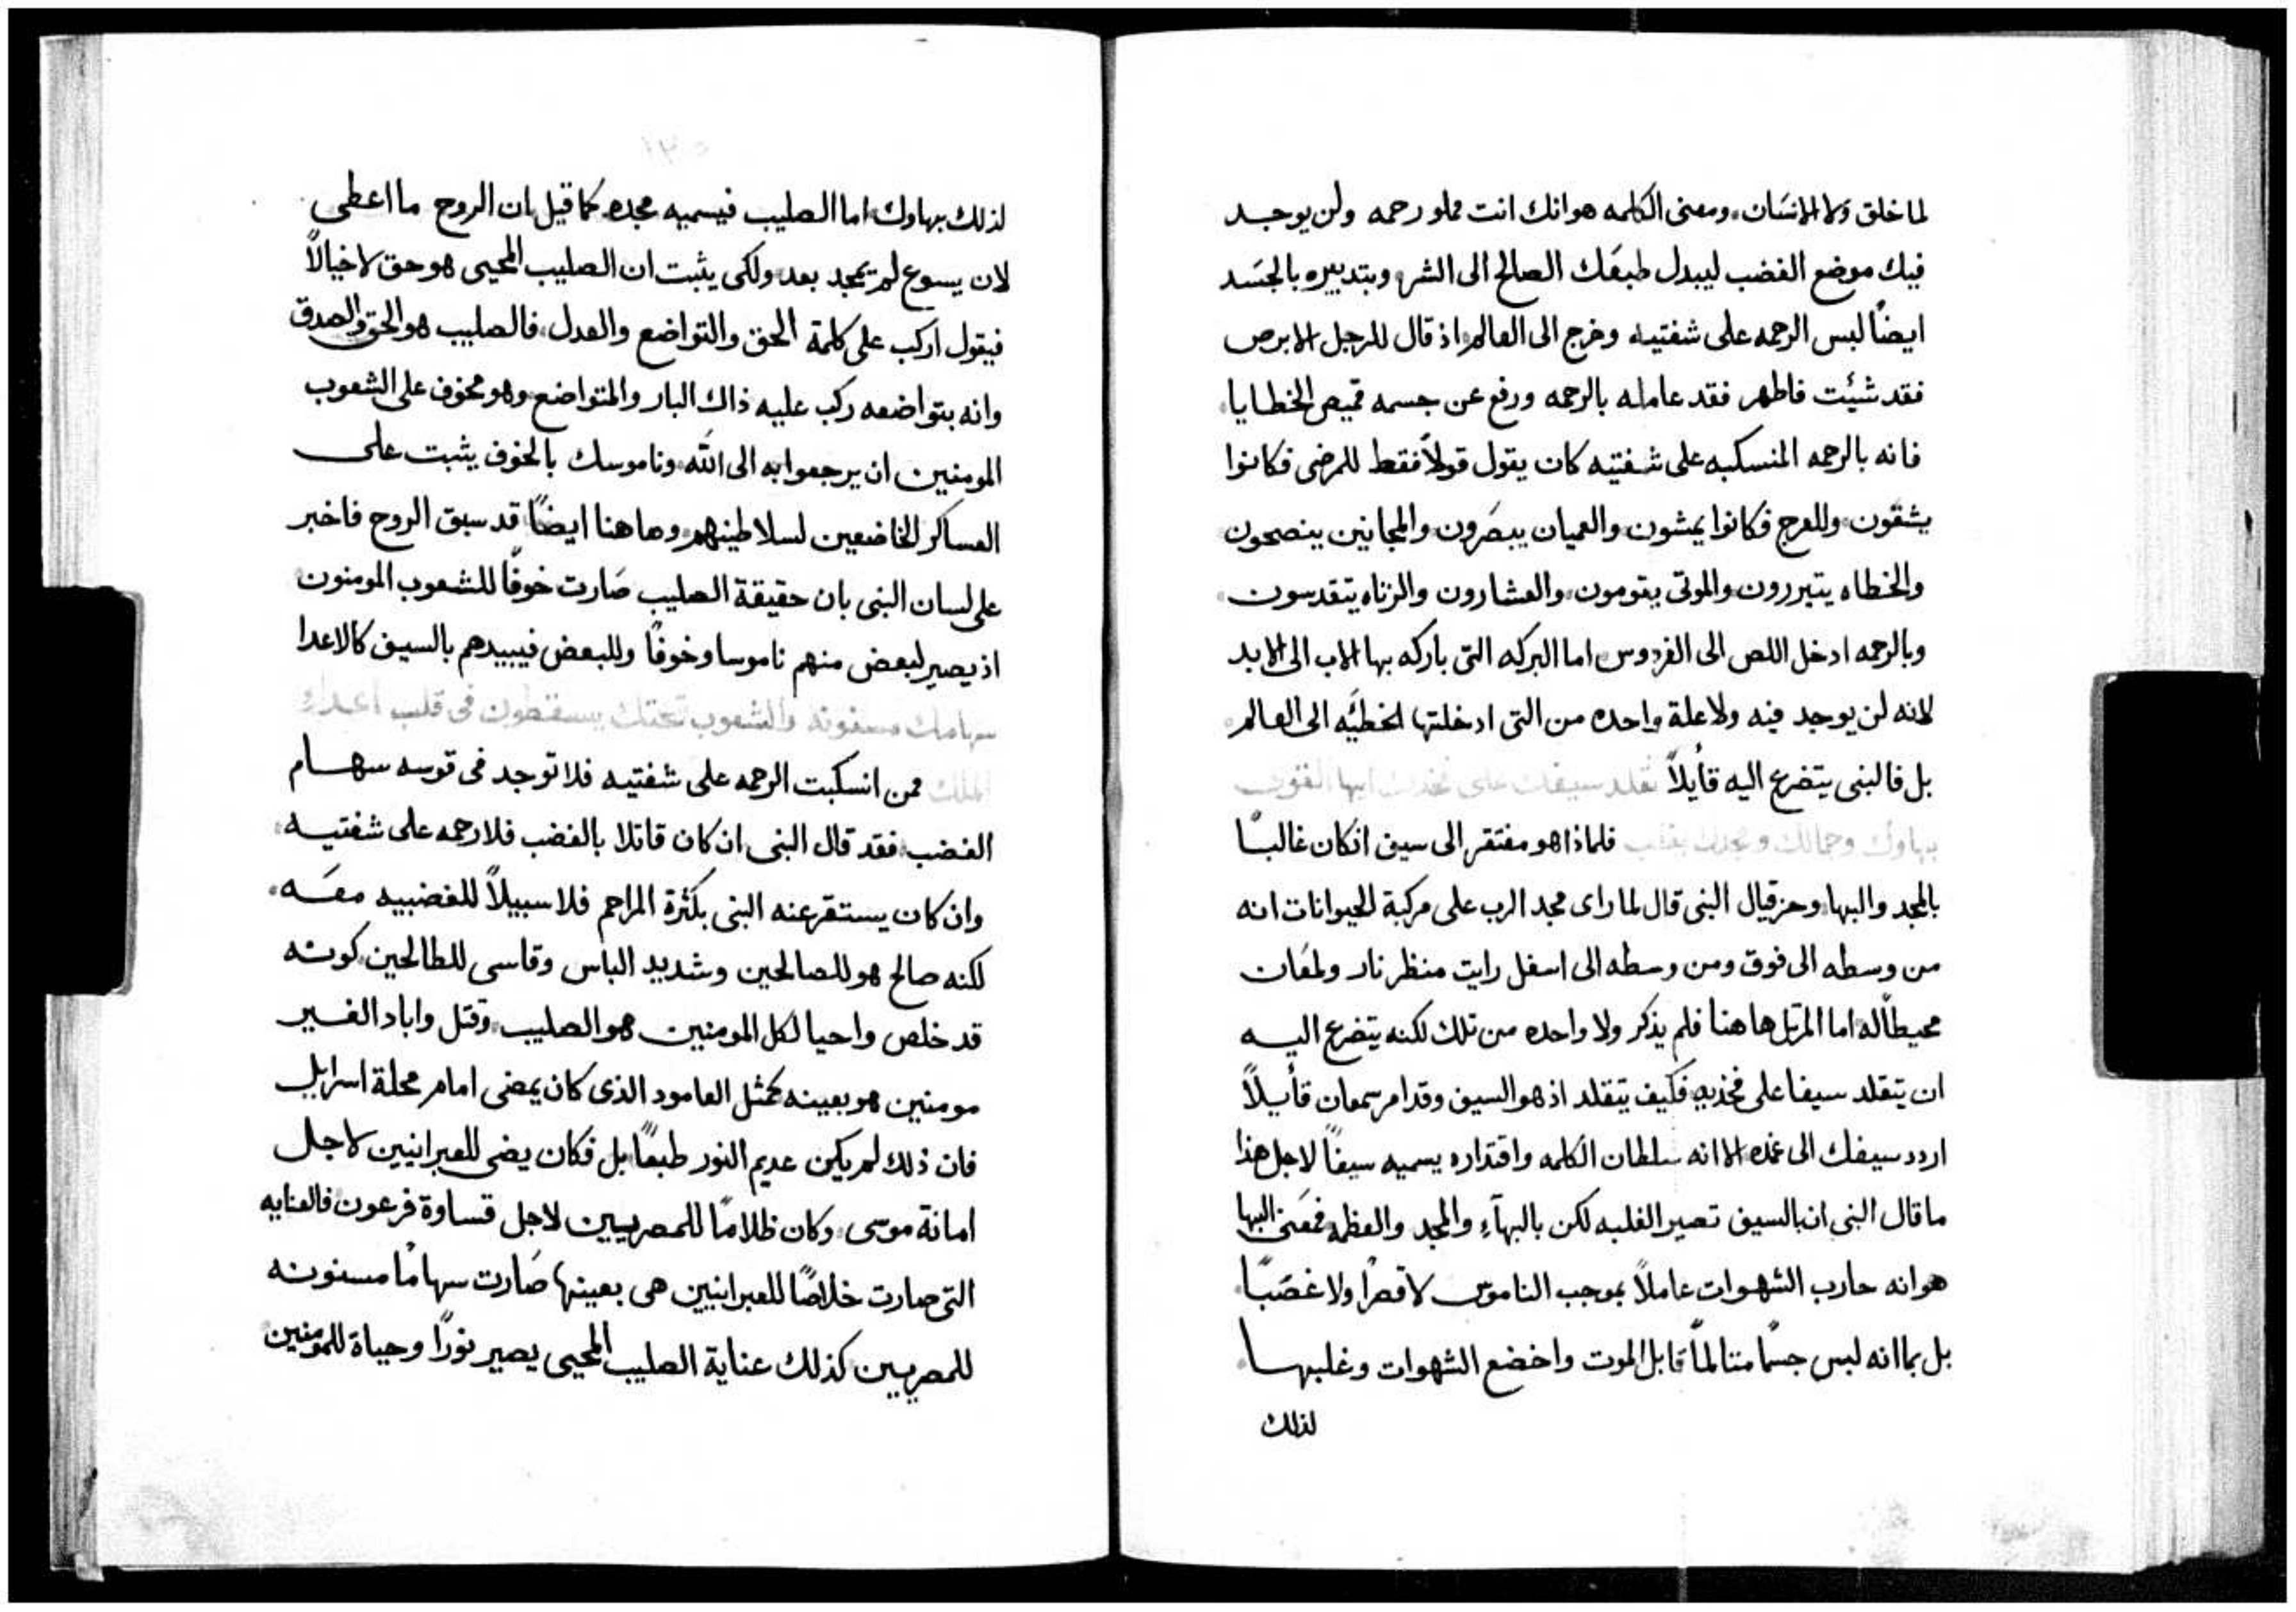 لما خلق ولا الانسان، ومعنى الكلمه هو انك انت مملو رحمه ولن يوجد
فيك موضع الغضب ليبدل طبعك الصالح الى الشر، وبتدبيره بالجسد
ايضًا لبس الرحمه على شفتيه وخرج الى العالم، اذ قال للرجل الابرص
فقد شئت فاطهر فقد عامله بالرحمه ورفع عن جسمه قميص الخطايا،
فانه بالرحمه المنسكبه على شفتيه كان يقول قولاً فقط للمرضى فكانوا
يشفون، وللعرج فكانوا يمشون، والعميان يبصرون، والمجانين ينصحون
والخطاه يتبررون، والموتى يقومون، والعشارون والزناه يتقدسون،
وبالرحمه ادخل اللص الى الفردوس، اما البركه التى باركه بها الاب الى الابد
لانه لن يوجد فيه ولا علة واحده من التى ادخلتها الخطيَّه الى العالم،
بل فالنبى يتضرع اليه قأيلاً تقلد سيفك على فخدك ايها القوى
بهاوك وجمالك فلماذا هو مفتقر الى سيف ان كان غالبًا
بالمجد والبها، وحزقيال النبى قال لما راى مجد الرب على مركبة الحيوانات انه
من وسطه الى فوق ومن وسطه الى اسفل رايت منظر نار ولمعان
محيطًا له، اما المرتل هاهنا فلم يذكر ولا واحده من تلك لكنه يتضرع اليه
ان يتقلد سيفا على فخذيه، فكيف يتقلد اذ هو السيف وقدام سمعان قأيلاً
اردد سيفك الى غمده، الا انه سلطان الكلمه واقتداره يسميه سيفًا لاجل هذا
ما قال النبى ان بالسيف تصير الغلبه لكن بالبهآءِ والمجد والعظمه، فمعنى البها
هو انه حارب الشهوات عاملاً بموجب الناموس لا قصرًا ولا غصبًا،
بل بما انه لبس جسمًا متالمًا قابل الموت واخضع الشهوات وغلبها،
لذلك
لذلك بهاوك، اما الصليب فيسميه مجده، كما قيل ان الروح ما اعطى
لان يسوع لم يتمجد بعد، ولكى يثبت ان الصليب المحيى هو حق لا خيالاً
فيقول اركب على كلمة الحق والتواضع والعدل، فالصليب هو الحق والصدق
وانه بتواضعه ركب عليه ذاك البار والمتواضع، وهو مخوف على الشعوب
المومنين ان يرجعوا به الى الله، وناموسك بالخوف يثبت على
العساكر الخاضعين لسلاطينهم، وهاهنا ايضًا قد سبق الروح فاخبر
على لسان النبى بان حقيقة الصليب صارت خوفًا للشعوب المومنون
اذ يصير لبعض منهم ناموسا وخوفًا وللبعض فيبيدهم بالسيف كالاعدا
سهامك مسنونه والشعوب تحتك يسقطون فى قلب اعداء
الملك فمن انسكبت الرحمه على شفتيه فلا توجد فى قوسه سهام
الغضب، فقد قال النبى ان كان قاتلا بالغضب فلا رحمه على شفتيه،
وان كان يستقر عنه النبى بكثرة المراحم فلا سبيلاً للغضبيه معه،
لكنه صالح هو للصالحين وشديد الباس وقاسى للطالحين، كونه
قد خلص واحيا لكل المومنين هو الصليب، وقتل واباد الغير
مومنين هو بعينه، كمثل العامود الذى كان يمضى امام محلة اسراييل
فان ذلك لم يكن عديم النور طبعًا، بل فكان يضى للعبرانيين لاجل
امانة موسى، وكان ظلامًا للمصريين لاجل قساوة فرعون، فالعنايه
التى صارت خلاصًا للعبرانيين هى بعينها صارت سهامًا مسنونه
للمصريين كذلك عناية الصليب المحيى يصير نورًا وحياة للمومنين،